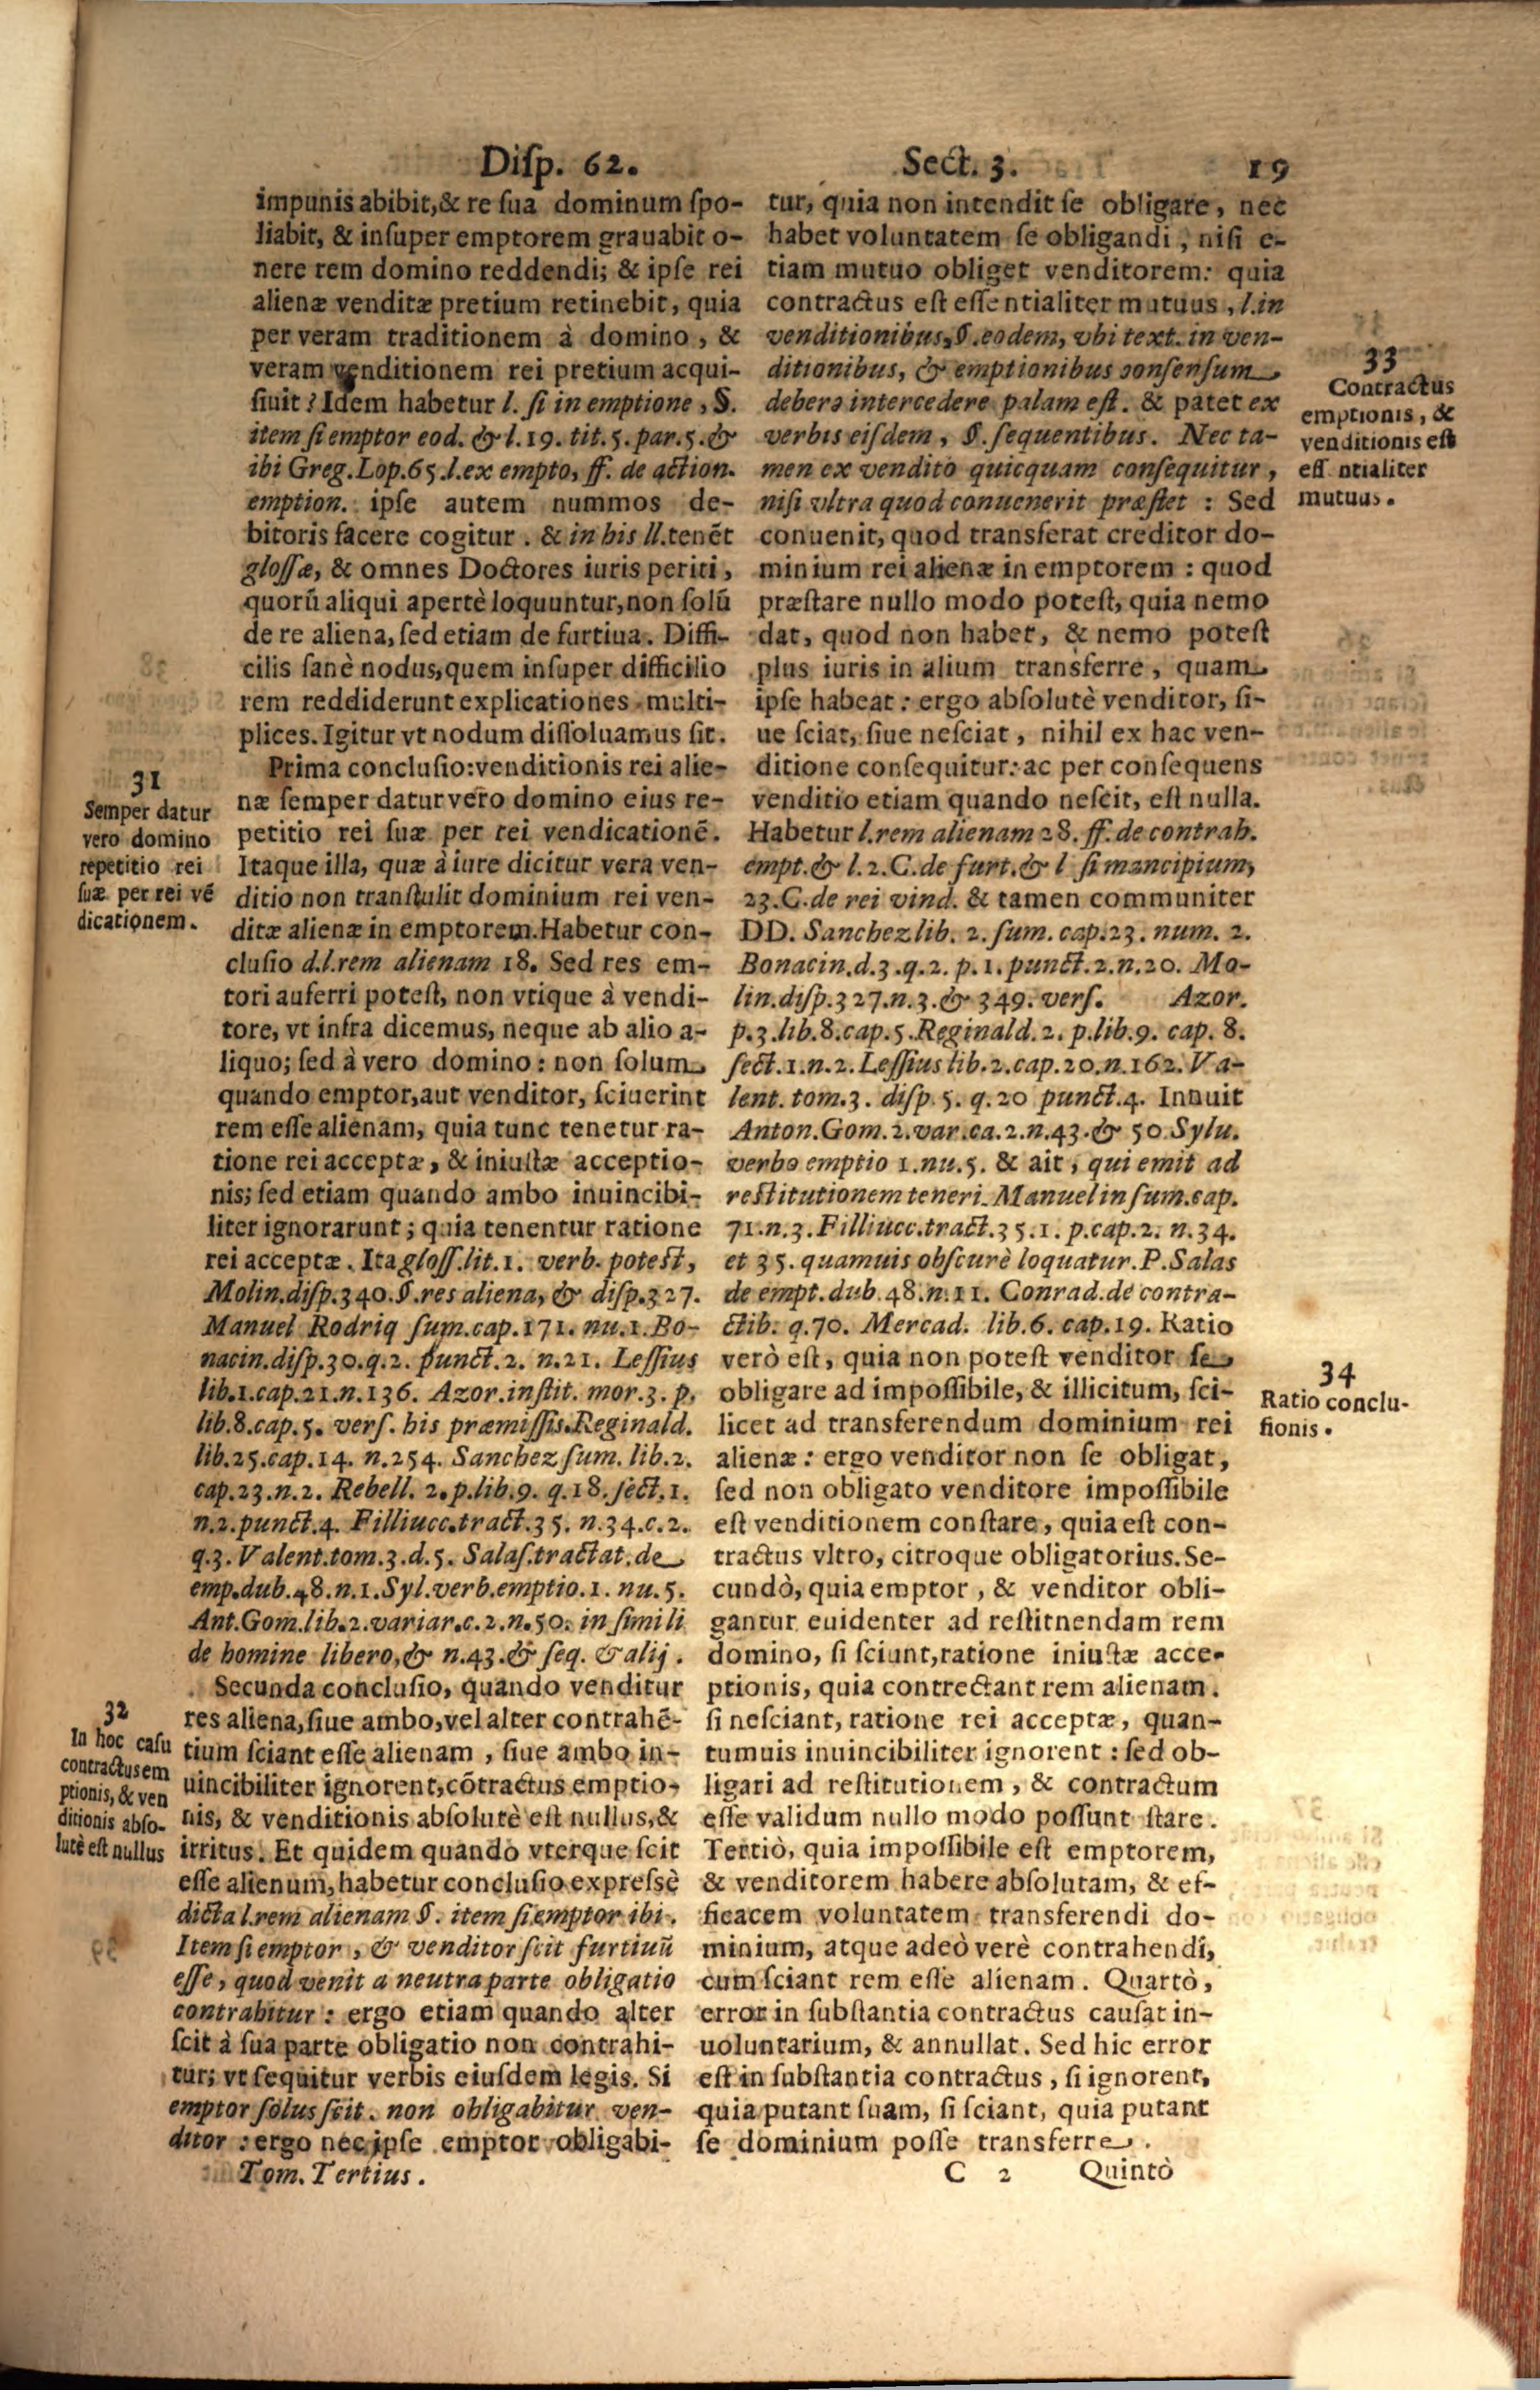 Disp. 62. Sect. 3. 19
impunis abibit, & re sua dominum spo-
liabit, & insuper emptorem grauabit o-
nere rem domino reddendi; & ipse rei
alienæ venditæ pretium retinebit, quia
per veram traditionem à domino, &
veram venditionem rei pretium acqui-
siuit? Idem habetur l. si in emptione, §.
item si emptor eod. & l. 19. tit. 5. par. 5. &
ibi Greg. Lop. 65. l. ex empto, ff. de action.
emption. ipse autem nummos de-
bitoris facere cogitur. & in his ll. tenẽt
glossæ, & omnes Doctores iuris periti,
quorũ aliqui apertè loquuntur, non solũ
de re aliena, sed etiam de furtiua. Diffi-
cilis sanè nodus, quem insuper difficilio
rem reddiderunt explicationes multi-
plices. Igitur vt nodum dissoluamus sit.
31
Semper datur
vero domino
repetitio rei
suæ per rei vẽ
dicationem.
Prima conclusio: venditionis rei alie-
næ semper datur vero domino eius re-
petitio rei suæ per rei vendicationẽ.
Itaque illa, quæ à iure dicitur vera ven-
ditio non transtulit dominium rei ven-
ditæ alienæ in emptorem. Habetur con-
clusio d. l. rem alienam 18. Sed res em-
tori auferri potest, non vtique à vendi-
tore, vt infra dicemus, neque ab alio a-
liquo; sed à vero domino: non solum
quando emptor, aut venditor, sciuerint
rem esse alienam, quia tunc tenetur ra-
tione rei acceptæ, & iniustæ acceptio-
nis; sed etiam quando ambo inuincibi-
liter ignorarunt; quia tenentur ratione
rei acceptæ. Ita gloss. lit. 1. verb. potest,
Molin. disp. 340. §. res aliena, & disp. 327.
Manuel Rodriq sum. cap. 171. nu. 1. Bo-
nacin. disp. 30. q. 2. punct. 2. n. 21. Lessius
lib. 1. cap. 21. n. 136. Azor. instit. mor. 3. p.
lib. 8. cap. 5. vers. his præmissis. Reginald.
lib. 25. cap. 14. n. 254. Sanchez sum. lib. 2.
cap. 23. n. 2. Rebell. 2. p. lib. 9. q. 18. sect. 1.
n. 2. punct. 4. Filliucc. tract. 35. n. 34. c. 2.
q. 3. Valent. tom. 3. d. 5. Salas. tractat. de
emp. dub. 48. n. 1. Syl. verb. emptio. 1. nu. 5.
Ant. Gom. lib. 2. variar. c. 2. n. 50. in simili
de homine libero, & n. 43. & seq. & alij.
32
In hoc casu
contractus em
ptionis, & ven
ditionis abso-
lutè est nullus
Secunda conclusio, quando venditur
res aliena, siue ambo, vel alter contrahẽ-
tium sciant esse alienam, siue ambo in-
uincibiliter ignorent, cõtractus emptio-
nis, & venditionis absolutè est nullus, &
irritus. Et quidem quando vterque scit
esse alienum, habetur conclusio expressè
dicta l. rem alienam §. item si emptor ibi.
Item si emptor, & venditor scit furtiuũ
esse, quod venit a neutra parte obligatio
contrahitur: ergo etiam quando alter
scit à sua parte obligatio non contrahi-
tur; vt sequitur verbis eiusdem legis. Si
emptor solus scit. non obligabitur ven-
ditor: ergo nec ipse emptor obligabi-
Tom. Tertius.
tur, quia non intendit se obligare, nec
habet voluntatem se obligandi, nisi e-
tiam mutuo obliget venditorem: quia
contractus est essentialiter mutuus, l. in
venditionibus, §. eodem, vbi text. in ven-
ditionibus, & emptionibus consensum
debere intercedere palam est. & patet ex
verbis eisdem, §. sequentibus. Nec ta-
men ex vendito quicquam consequitur,
nisi vltra quod conuenerit præstet: Sed
conuenit, quod transferat creditor do-
minium rei alienæ in emptorem: quod
præstare nullo modo potest, quia nemo
dat, quod non habet, & nemo potest
plus iuris in alium transferre, quam
ipse habeat: ergo absolutè venditor, si-
ue sciat, siue nesciat, nihil ex hac ven-
ditione consequitur: ac per consequens
venditio etiam quando nescit, est nulla.
Habetur l. rem alienam 28. ff. de contrah.
empt. & l. 2. C. de furt. & l si mancipium,
23. C. de rei vind. & tamen communiter
DD. Sanchez lib. 2. sum. cap. 23. num. 2.
Bonacin. d. 3. q. 2. p. 1. punct. 2. n. 20. Mo-
lin. disp. 327. n. 3. & 349. vers. Azor.
p. 3. lib. 8. cap. 5. Reginald. 2. p. lib. 9. cap. 8.
sect. 1. n. 2. Lessius lib. 2. cap. 20. n. 162. Va-
lent. tom. 3. disp. 5. q. 20 punct. 4. Innuit
Anton. Gom. 2. var. ca. 2. n. 43. & 50. Sylu.
verbo emptio 1. nu. 5. & ait, qui emit ad
restitutionem teneri. Manuel in sum. cap.
71. n. 3. Filliucc. tract. 35. 1. p. cap. 2. n. 34.
et 35. quamuis obscurè loquatur. P. Salas
de empt. dub. 48. n. 11. Conrad. de contra-
ctib. q. 70. Mercad. lib. 6. cap. 19. Ratio
verò est, quia non potest venditor se
obligare ad impossibile, & illicitum, sci-
licet ad transferendum dominium rei
alienæ: ergo venditor non se obligat,
sed non obligato venditore impossibile
est venditionem constare, quia est con-
tractus vltro, citroque obligatorius. Se-
cundò, quia emptor, & venditor obli-
gantur euidenter ad restitnendam rem
domino, si sciunt, ratione iniustæ acce-
ptionis, quia contrectant rem alienam.
si nesciant, ratione rei acceptæ, quan-
tumuis inuincibiliter ignorent: sed ob-
ligari ad restitutionem, & contractum
esse validum nullo modo possunt stare.
Tertiò, quia impossibile est emptorem,
& venditorem habere absolutam, & ef-
ficacem voluntatem transferendi do-
minium, atque adeò verè contrahendi,
cum sciant rem esse alienam. Quartò,
error in substantia contractus causat in-
uoluntarium, & annullat. Sed hic error
est in substantia contractus, si ignorent,
quia putant suam, si sciant, quia putant
se dominium posse transferre.
C 2 Quintò
33
Contractus
emptionis, &
venditionis est
ess ntialiter
mutuus.
34
Ratio conclu-
sionis.